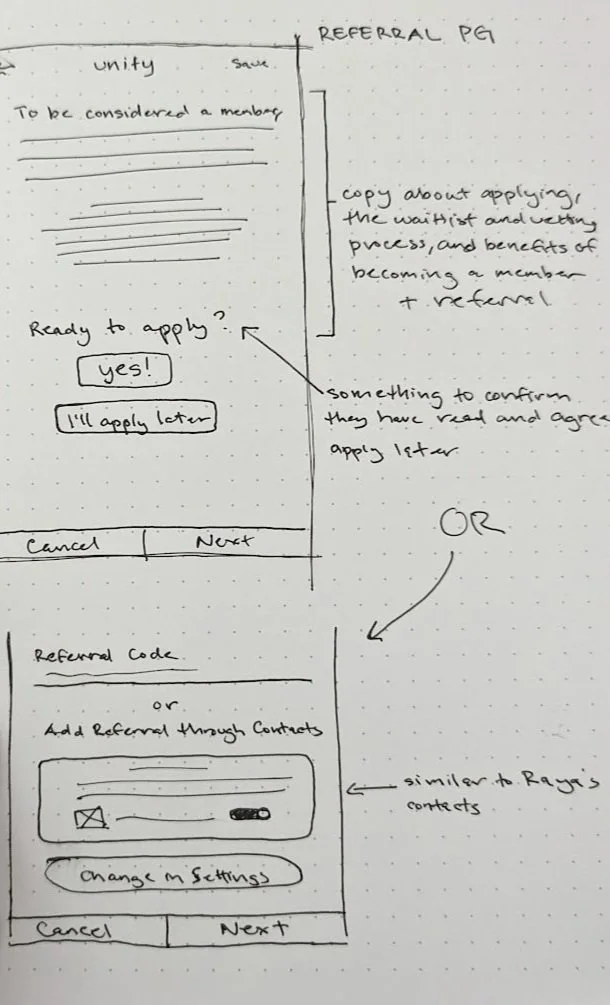 REFERRAL PG
unity
Save
To be considered a member
copy about applying,
the waitlist and vetting
process, and benefits of
becoming a member
+ referral
Ready to apply?
yes!
I'll apply later
something to confirm
they have read and agree
apply later
Cancel
Next
OR
Referral Code
or
Add Referral through Contacts
similar to Raya's
contacts
Change in Settings
Cancel
Next